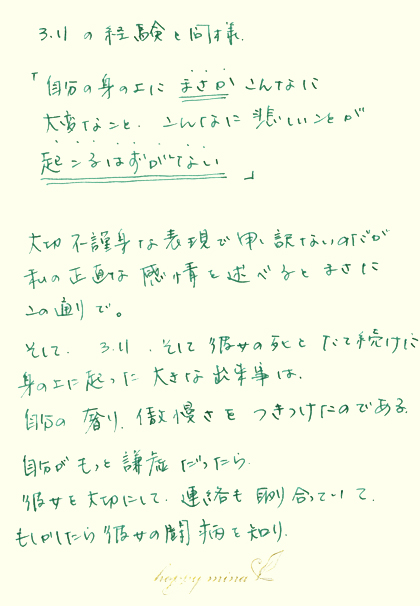 3.11の経験と同様.
「自分の身の上に まさか こんなに
大変なこと、こんなに悲しいことが
起こるはずがない
」
大切 不謹慎な表現で申し訳ないのだが
私の正直な 感情を述べるとまさに
この通りで。
そして、3.11、そして彼女の死とたて続けに
身の上に起った大きな出来事は、
自分の奢り、傲慢さをつきつけたのである.
自分がもっと謙虚だったら、
彼女を大切にして、連絡も取り合っていて、
もしかしたら彼女の闘病を知り.
happy mina